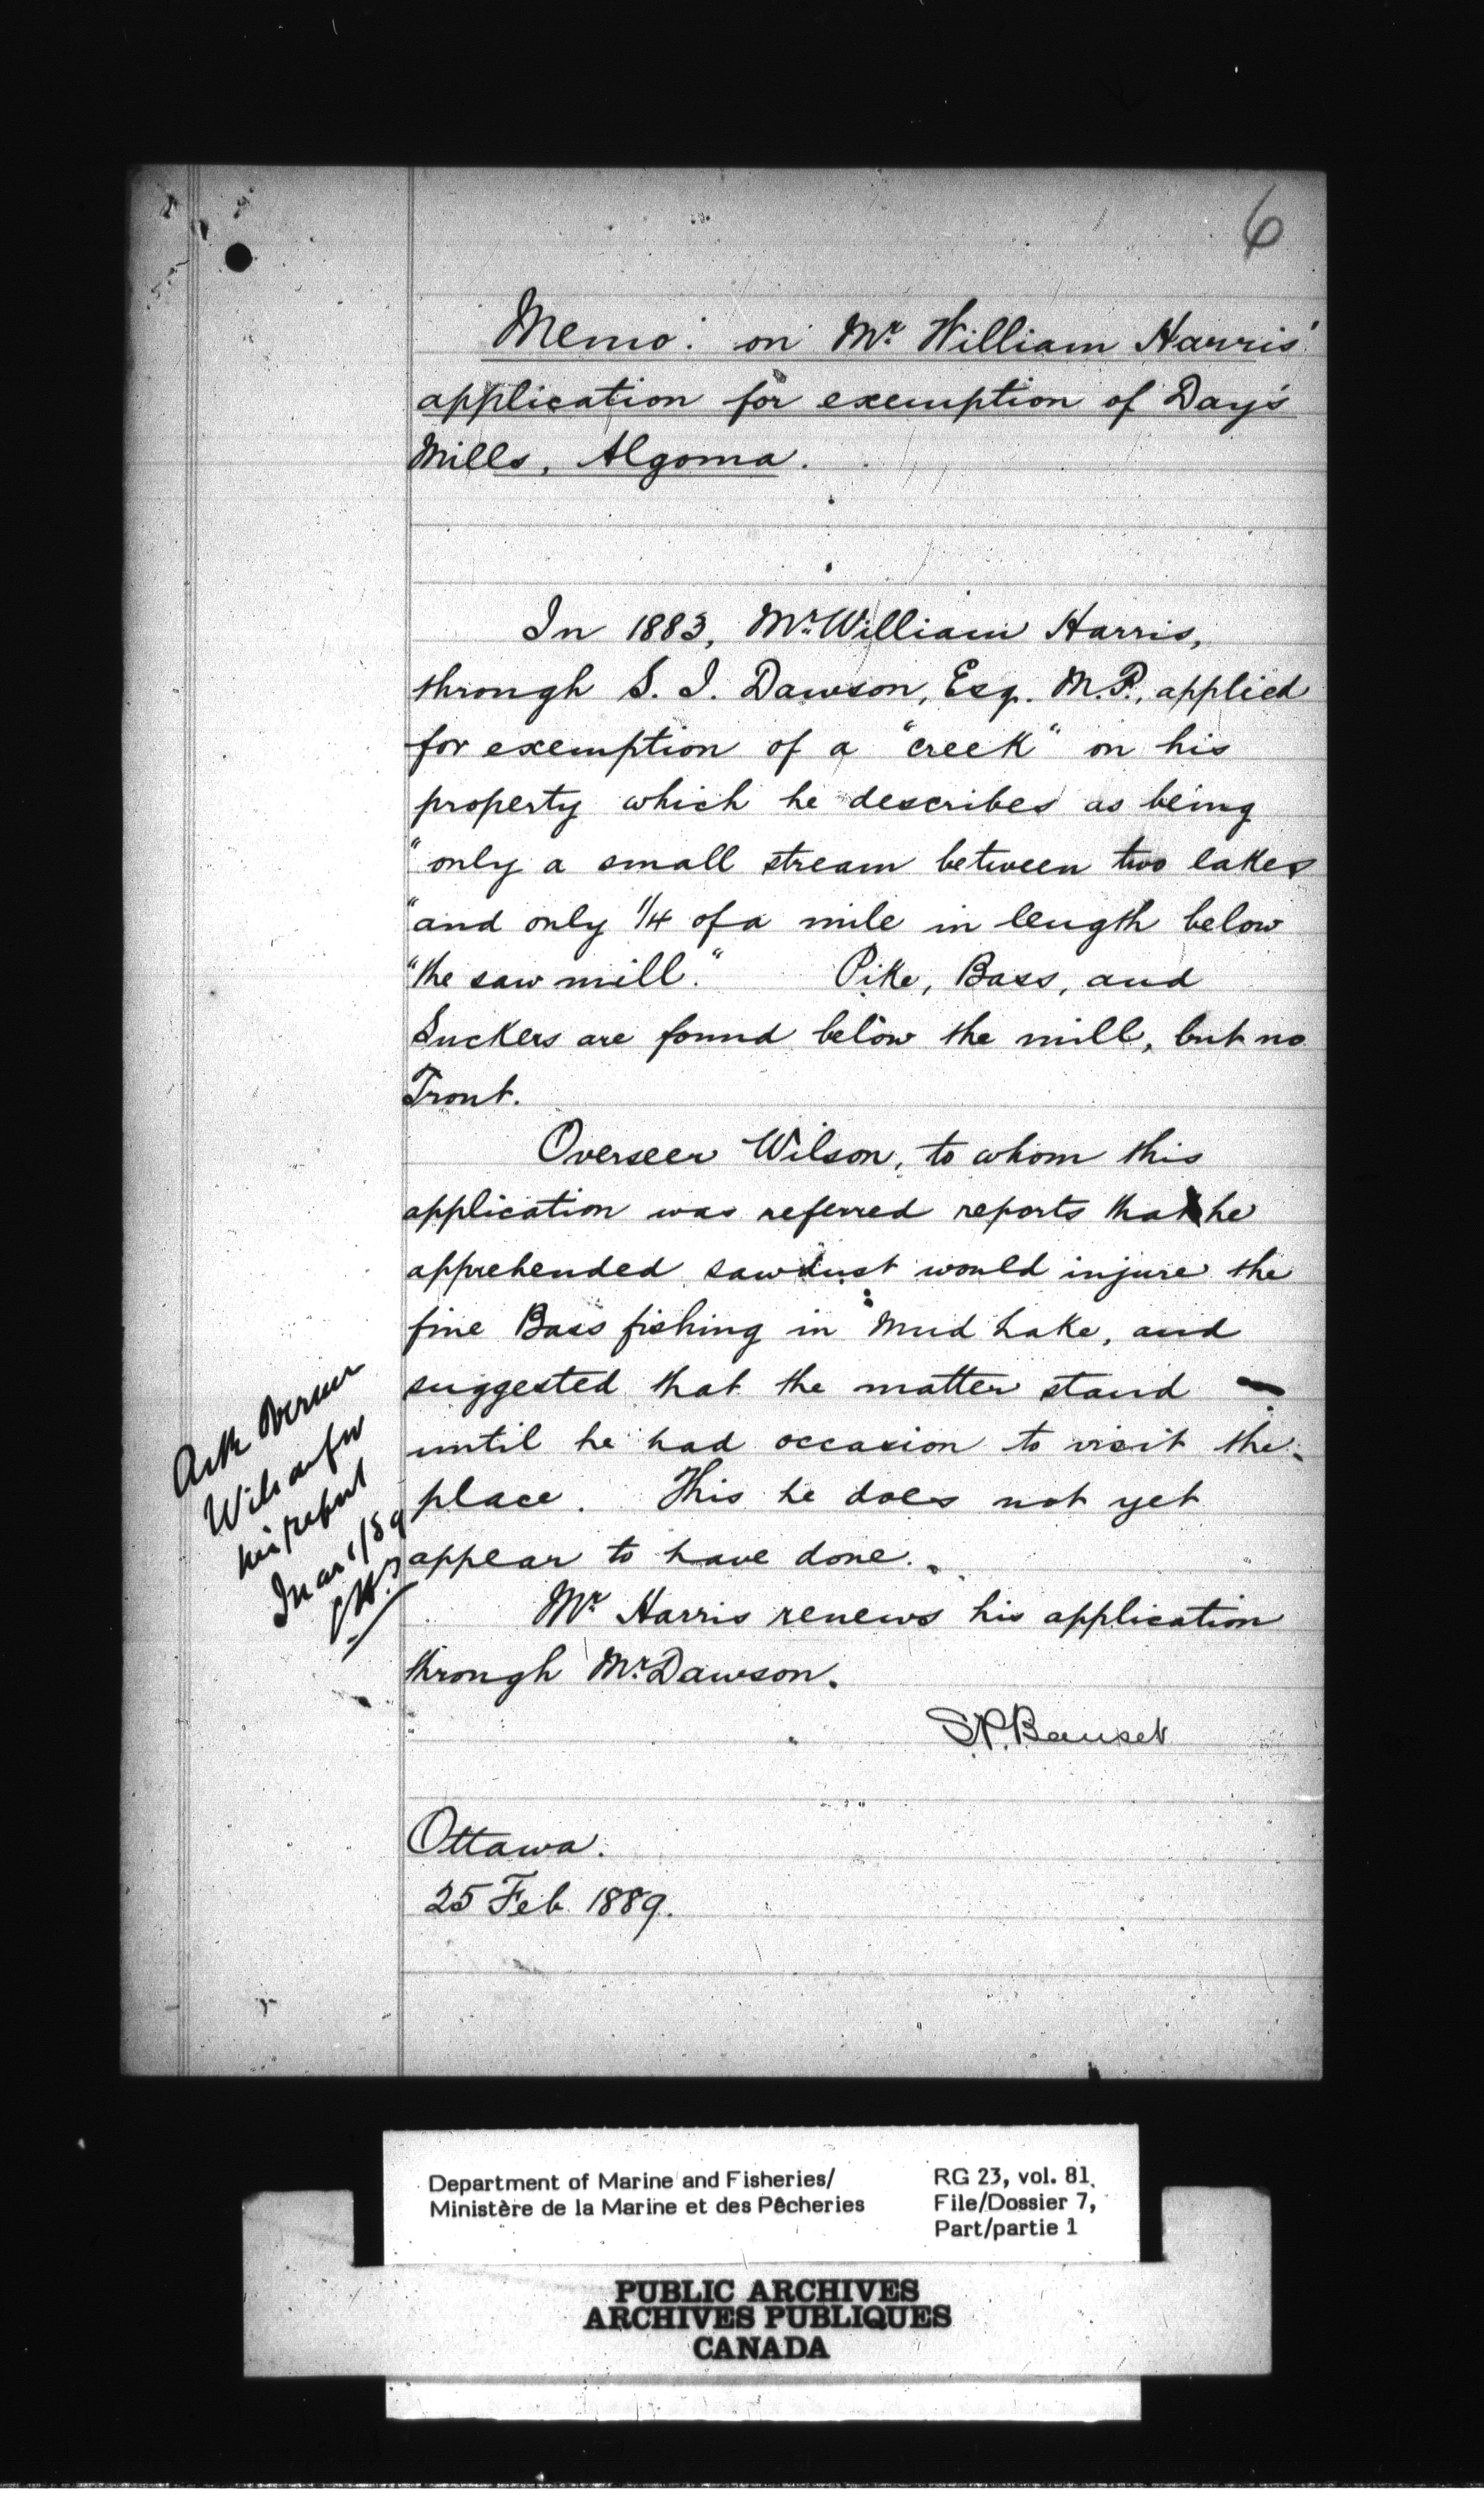 6
Memo: on Mr. William Harris'
application for exemption of Day's
Mills, Algoma.
In 1883, Mr. William Harris,
through S. J. Dawson, Esq. M.P., applied
for exemption of a "creek" on his
property which he describes as being
"only a small stream between two lakes
"and only 1/4 of a mile in length below
"the saw mill." Pike, Bass, and
Suckers are found below the mill, but no
Trout.
Overseer Wilson, to whom this
application was referred reports that he
apprehended sawdust would injure the
fine Bass fishing in Mud Lake, and
suggested that the matter stand
until he had occasion to visit the
place. This he does not yet
appear to have done.
Mr. Harris renews his application
through Mr. Dawson.
S.P. Bauset
Ottawa.
25 Feb. 1889.
Ask Overseer
Wilson for
his report
Mar 1/89
Department of Marine and Fisheries/
Ministère de la Marine et des Pêcheries
RG 23, vol. 81,
File/Dossier 7,
Part/partie 1
PUBLIC ARCHIVES
ARCHIVES PUBLIQUES
CANADA